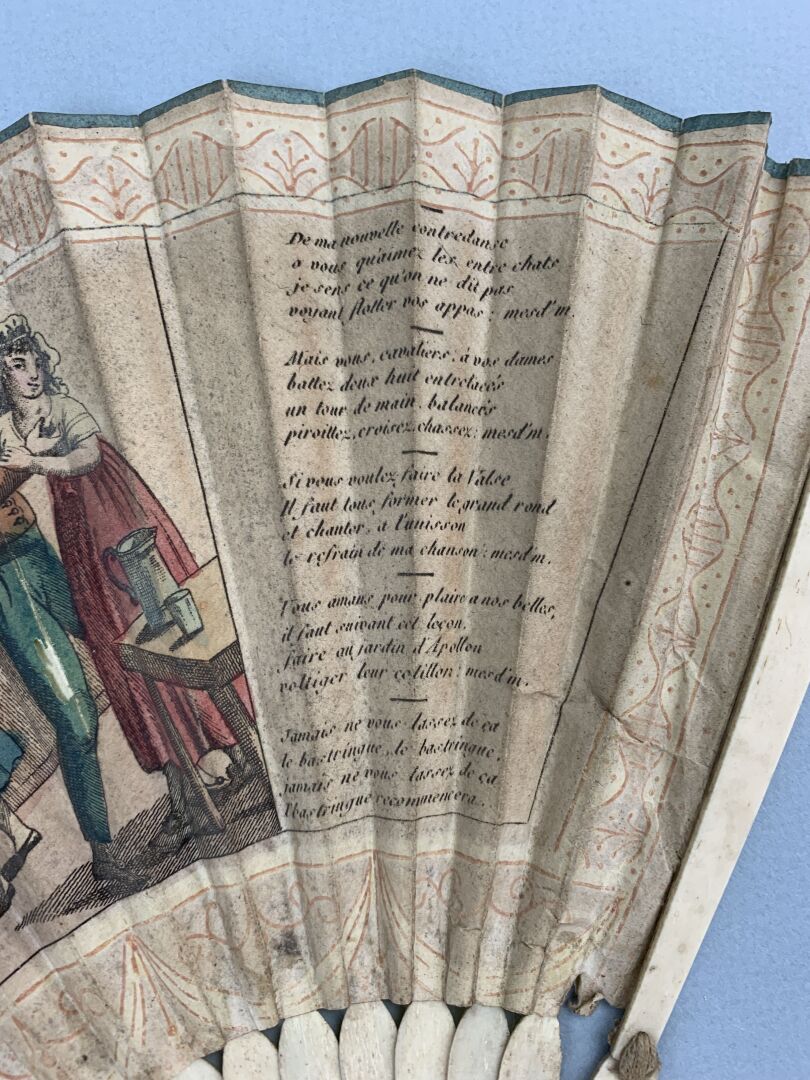 De ma nouvelle contredanse
o vous qu'aimez les entre chats
je sens ce qu'on ne dit pas
voyant flotter vos appas : mesd'm.
Mais vous, cavaliers, à vos dames
battez deux huit entrelacés
un tour de main, balancés
piroillez, croisez, chassez : mesd'm.
Si vous voulez faire la Valse
Il faut tous former le grand rond
et chanter, a l'unisson
le refrain de ma chanson : mesd'm.
Vous amans pour plaire a nos belles,
il faut suivant cet leçon,
faire au jardin d'Apollon
voltiger leur cotillon : mesd'm.
Jamais ne vous lassez de ça
le bastringue, le bastringue,
jamais ne vous lassez de ça
l'bastringue recommencera.